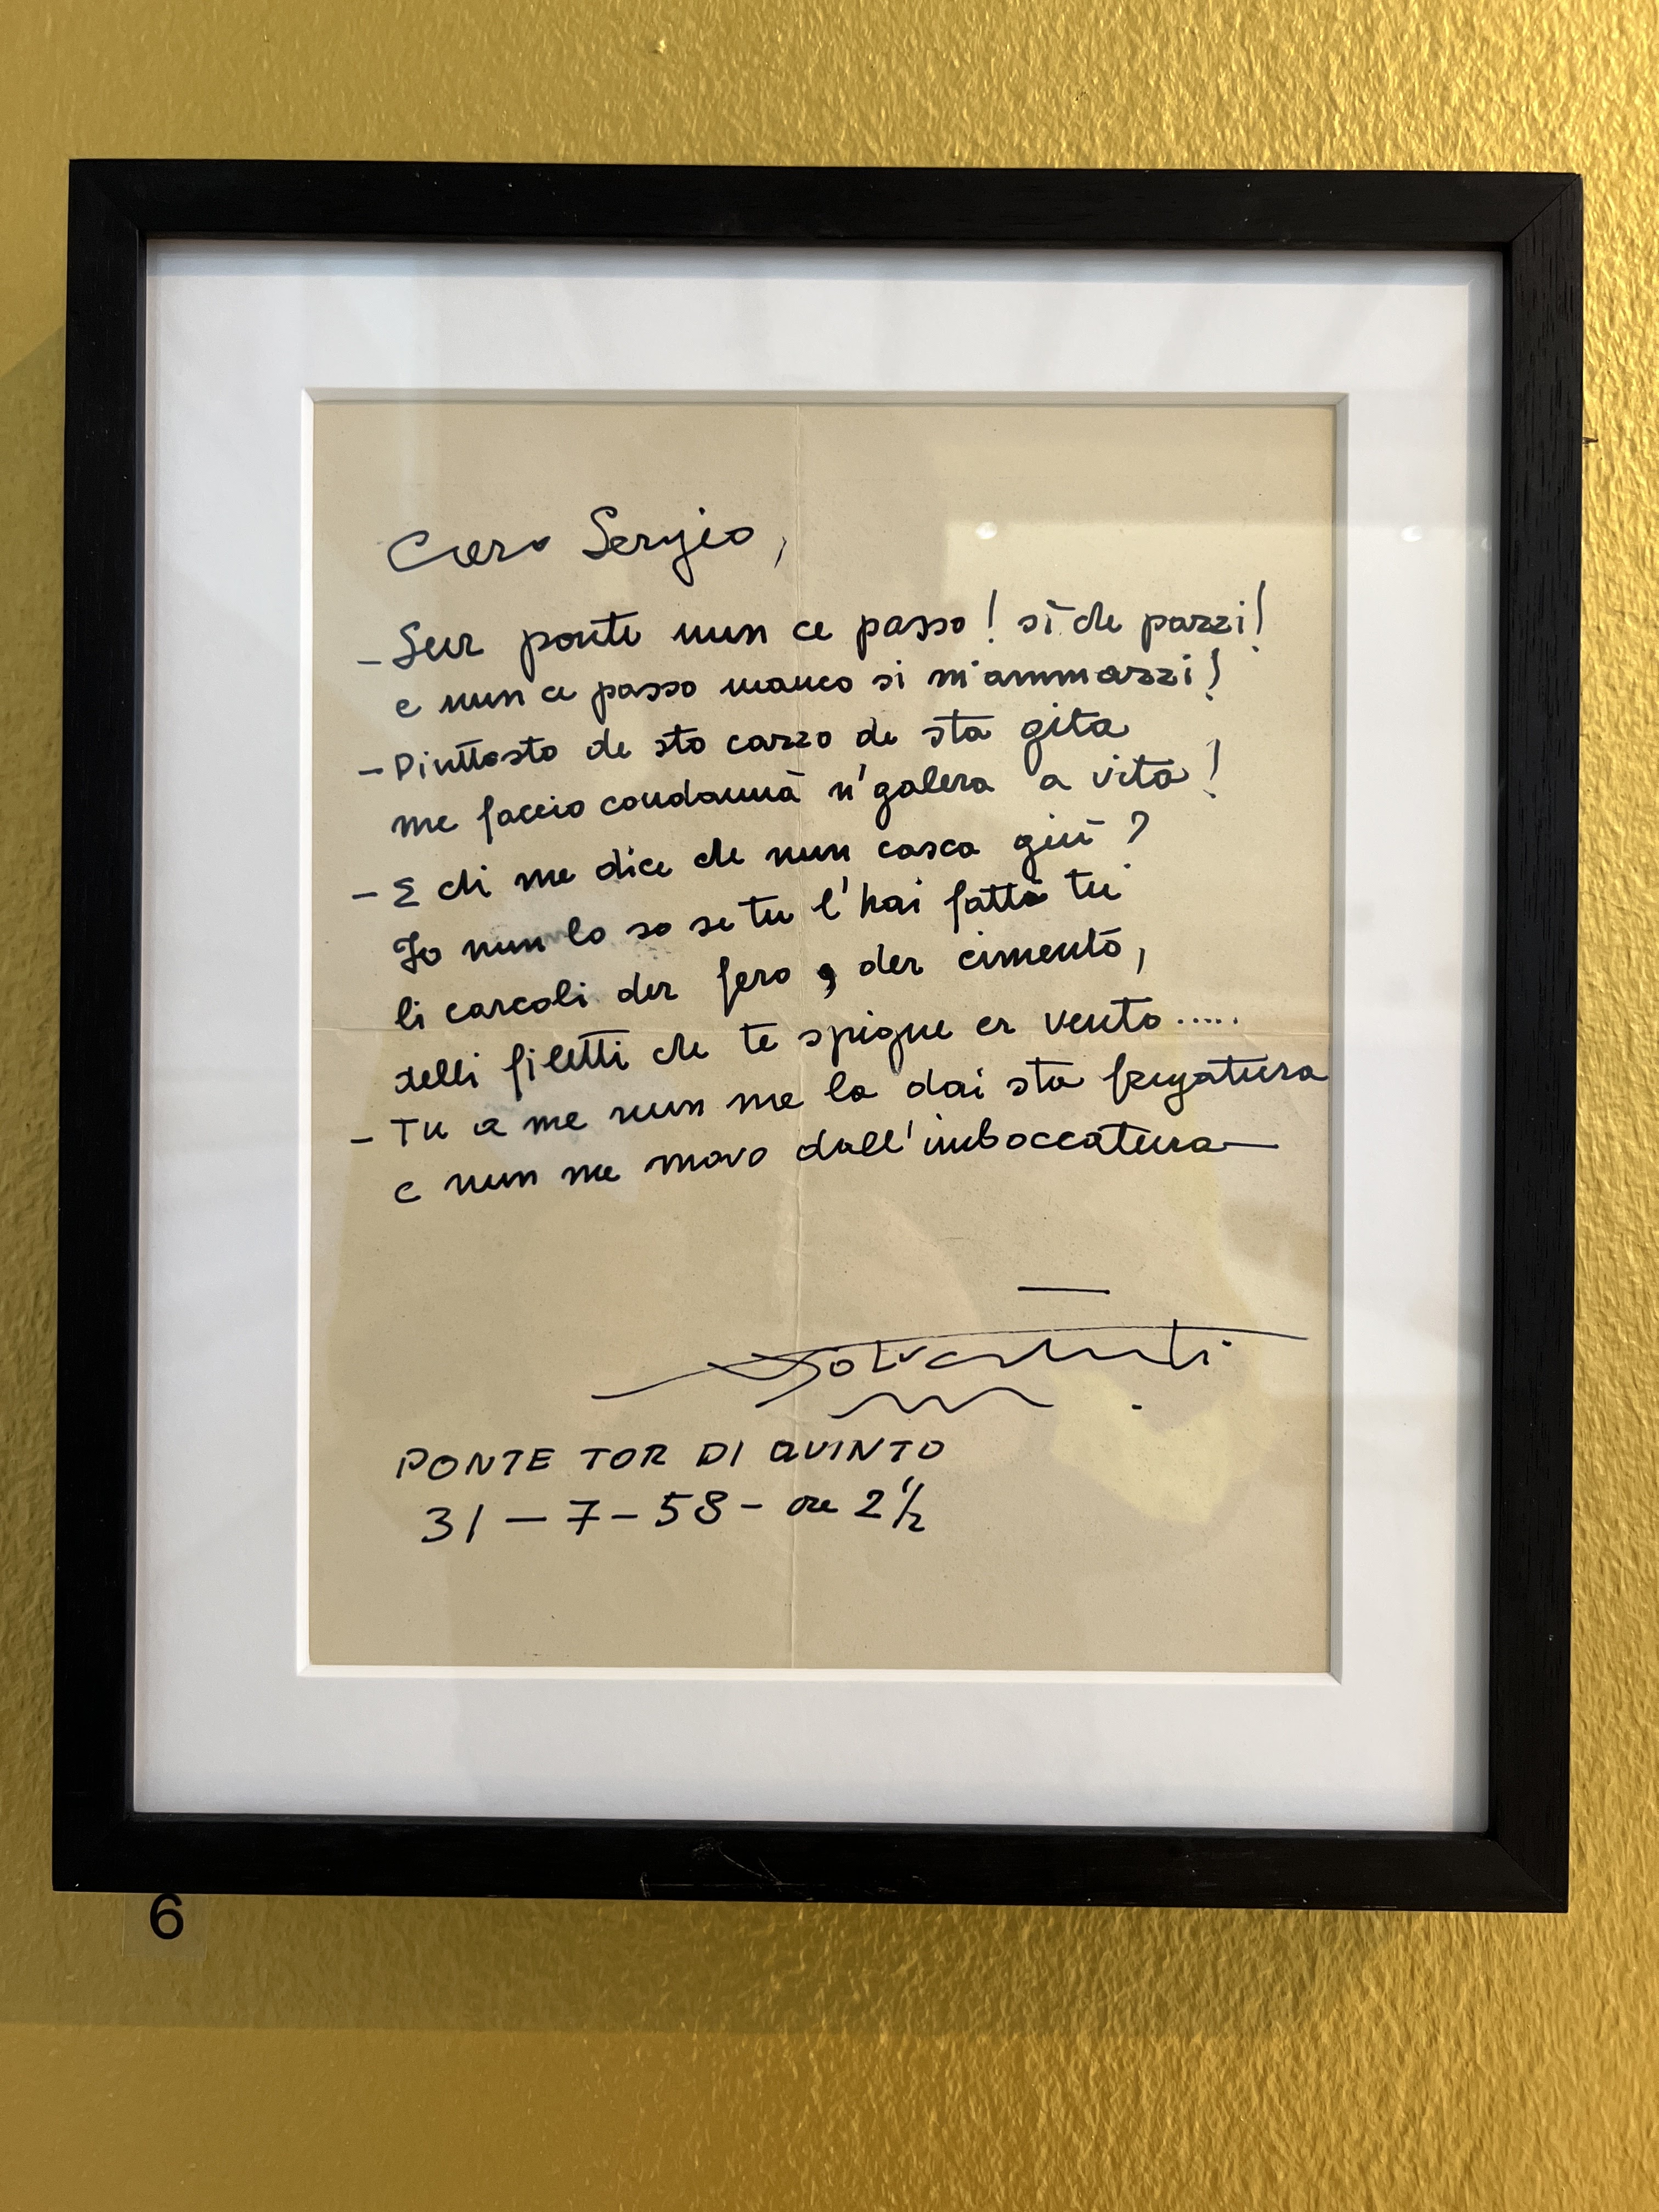 Caro Sergio,
- Sur ponte nun ce passo! sì de pazzi!
e nun ce passo manco si m'ammazzi!
- Piuttosto de sto cazzo de sta gita
me faccio condannà n'galera a vita!
- E chi me dice che nun casca giù?
Io nun lo so se tu l'hai fatto tu
li carcoli der fero, der cimento,
delli filetti che te spigne er vento.....
- Tu a me nun me la dai sta fregatura
e nun me movo dall'imboccatura—
PONTE TOR DI QUINTO
31 - 7 - 58 - ore 2 1/2
6